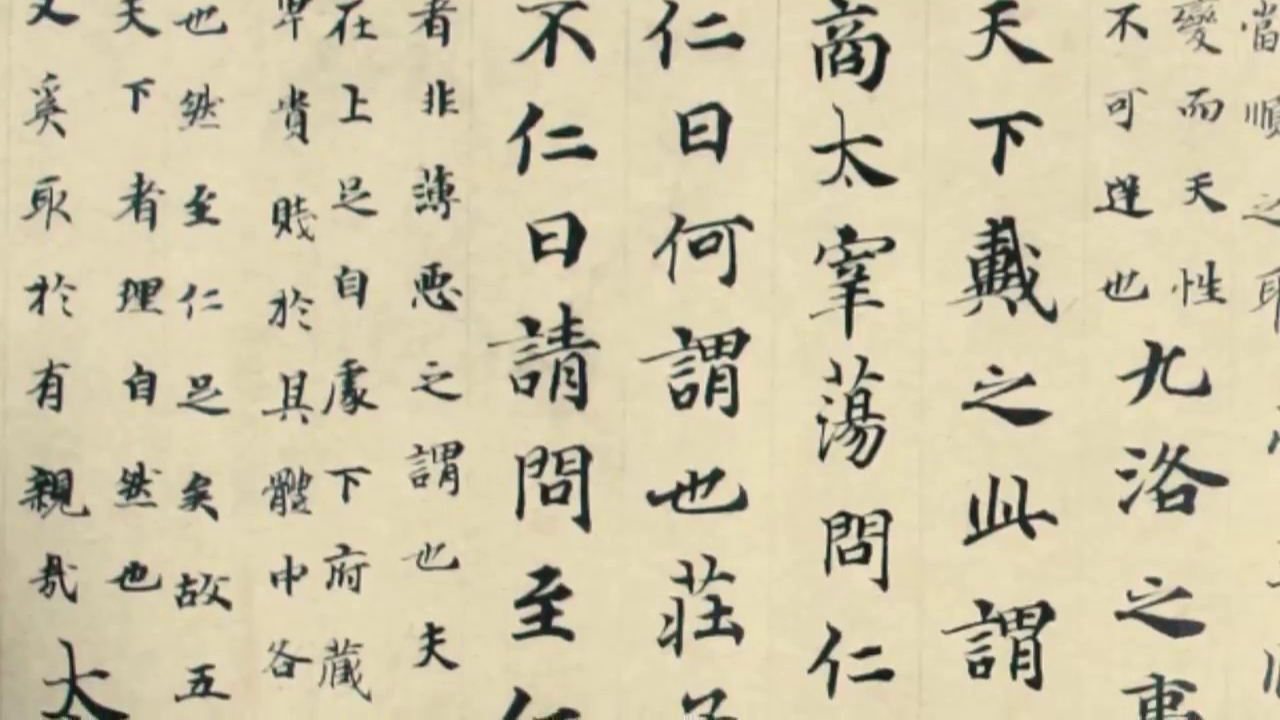 當順之
變而天性
不可逆也九洛之事
天下戴之此謂
商太宰蕩問仁
仁曰何謂也莊子
不仁曰請問至仁
者非薄悳之謂也夫
在上足自處下府藏
卑貴賤於其體中各
也然至仁足矣故五
天下者理自然也
又奚取於有親哉太